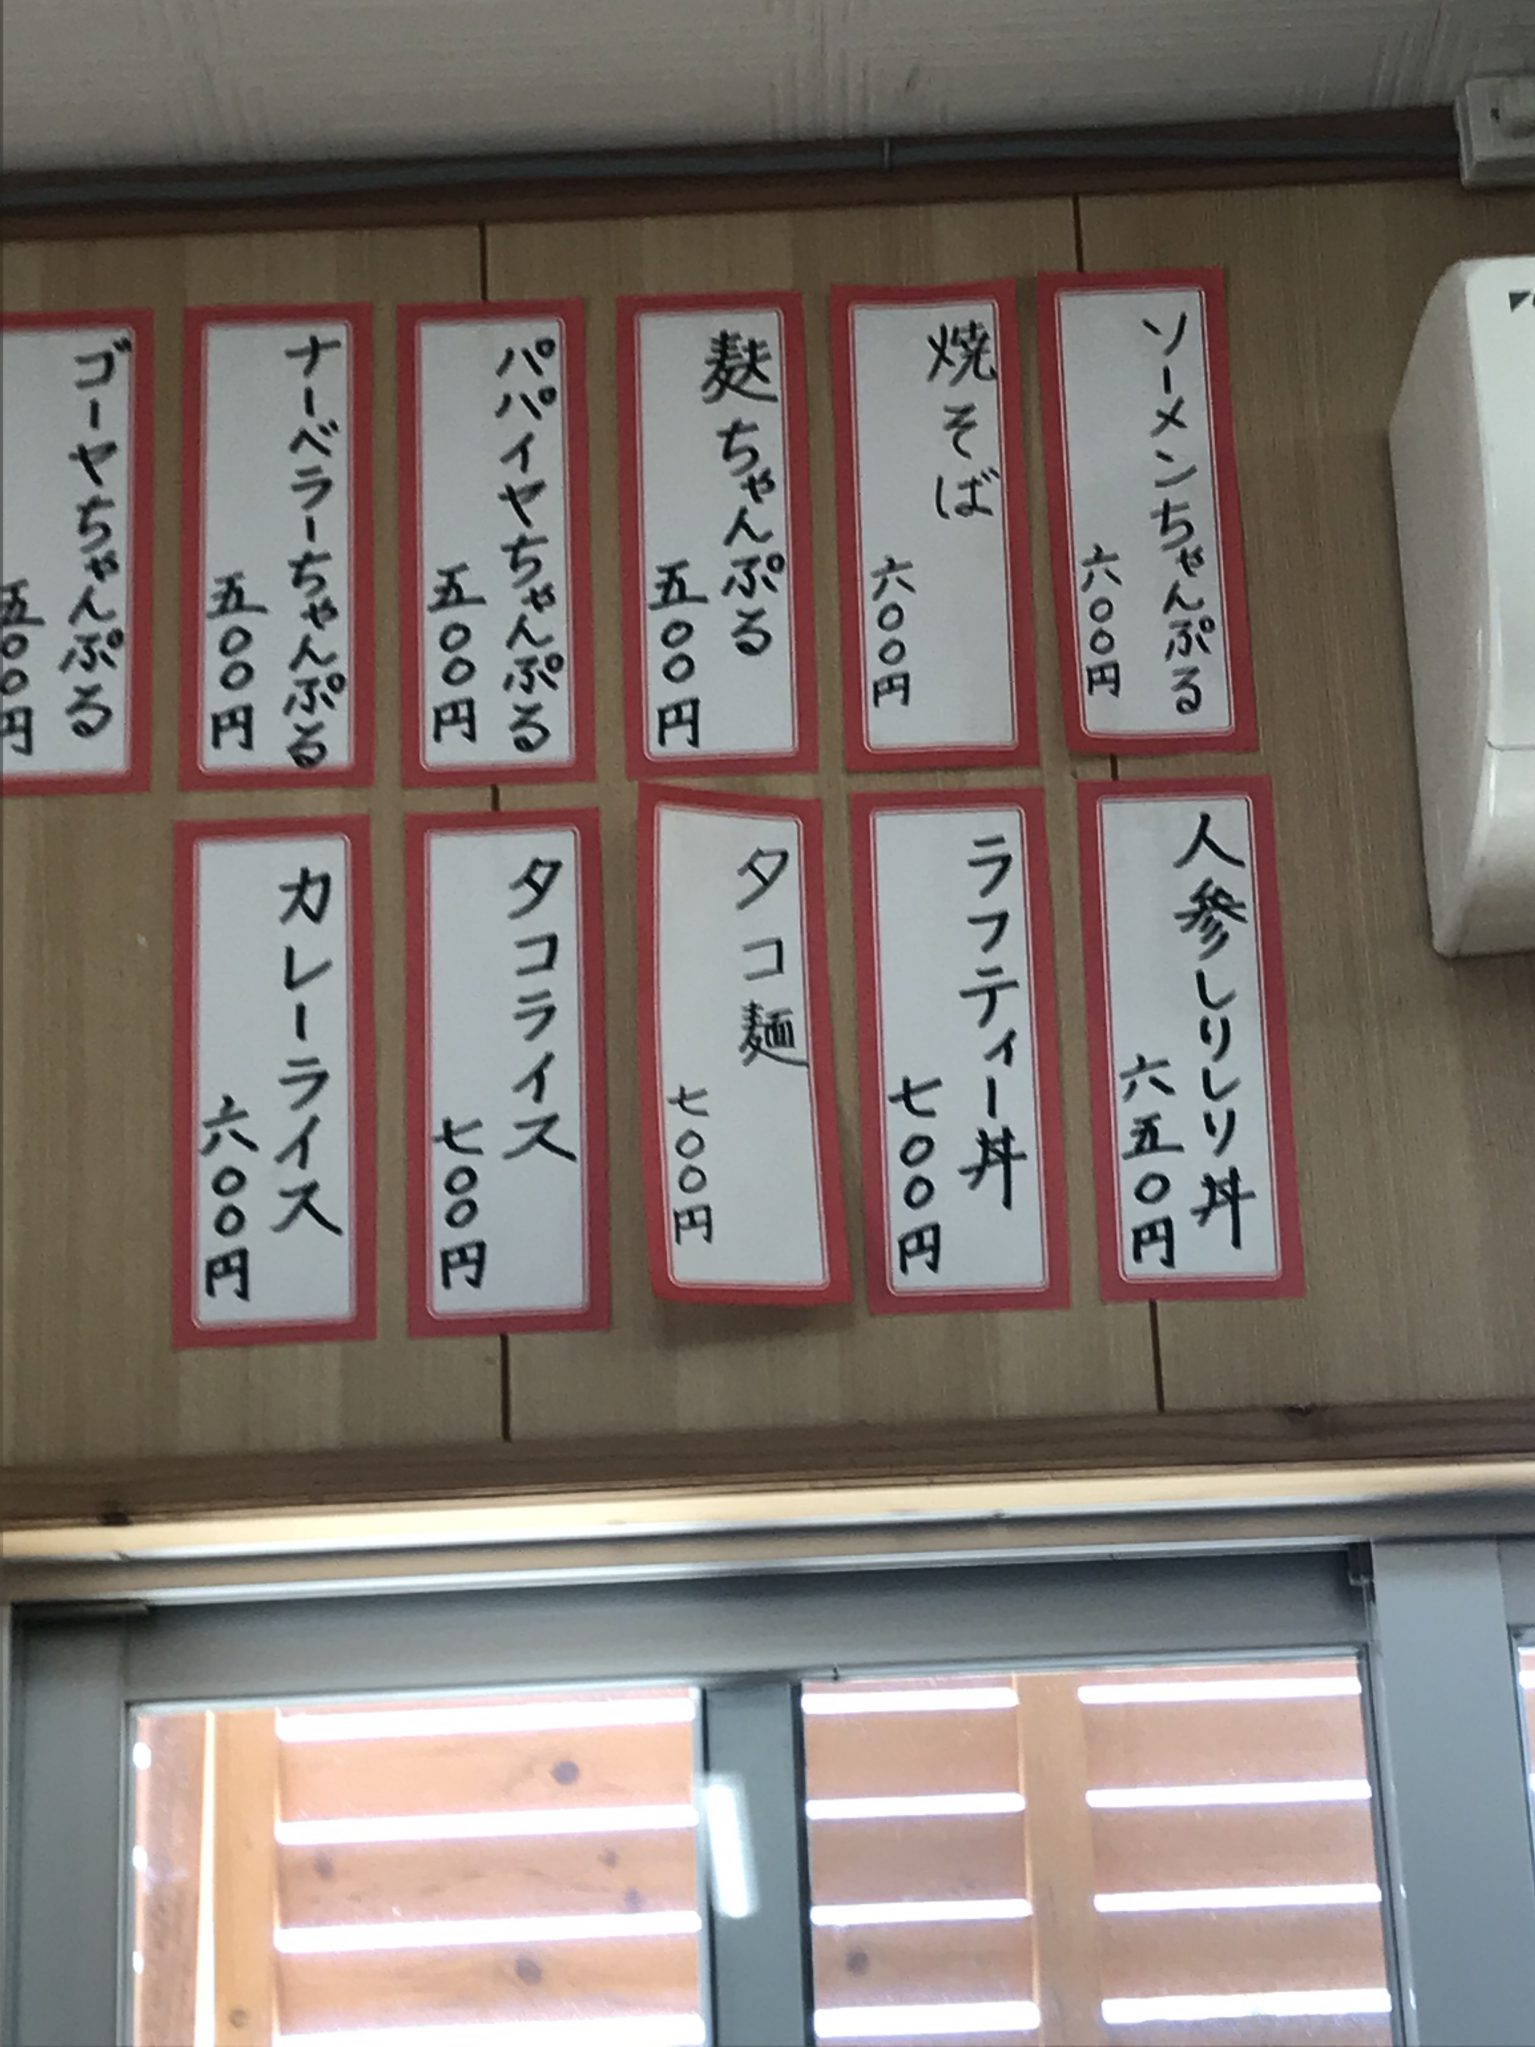 ソーメンちゃんぷる
六〇〇円
焼そば
六〇〇円
麩ちゃんぷる
五〇〇円
パパイヤちゃんぷる
五〇〇円
ナーベラーちゃんぷる
五〇〇円
ゴーヤちゃんぷる
五〇〇円
人参しりしり丼
六五〇円
ラフティー丼
七〇〇円
タコ麺
七〇〇円
タコライス
七〇〇円
カレーライス
六〇〇円